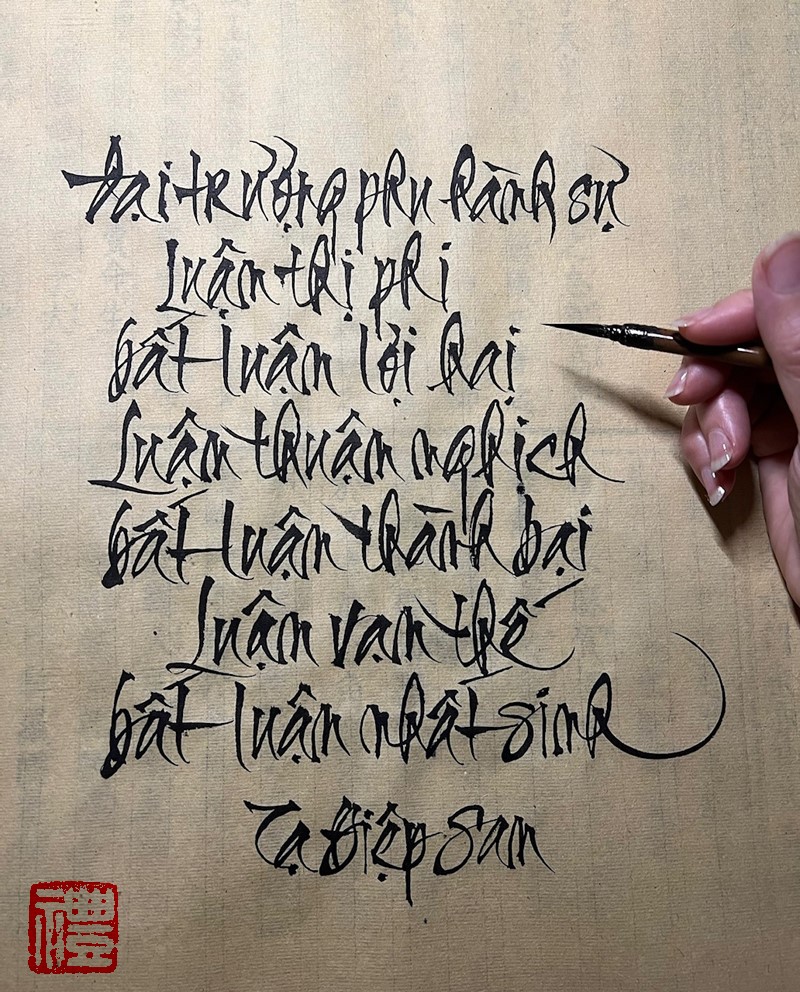 Đại trượng phu hành sự
Luận thị phi
bất luận lợi hại
Luận thuận nghịch
bất luận thành bại
Luận vạn thế
bất luận nhất sinh
Tạ Điệp San
禮